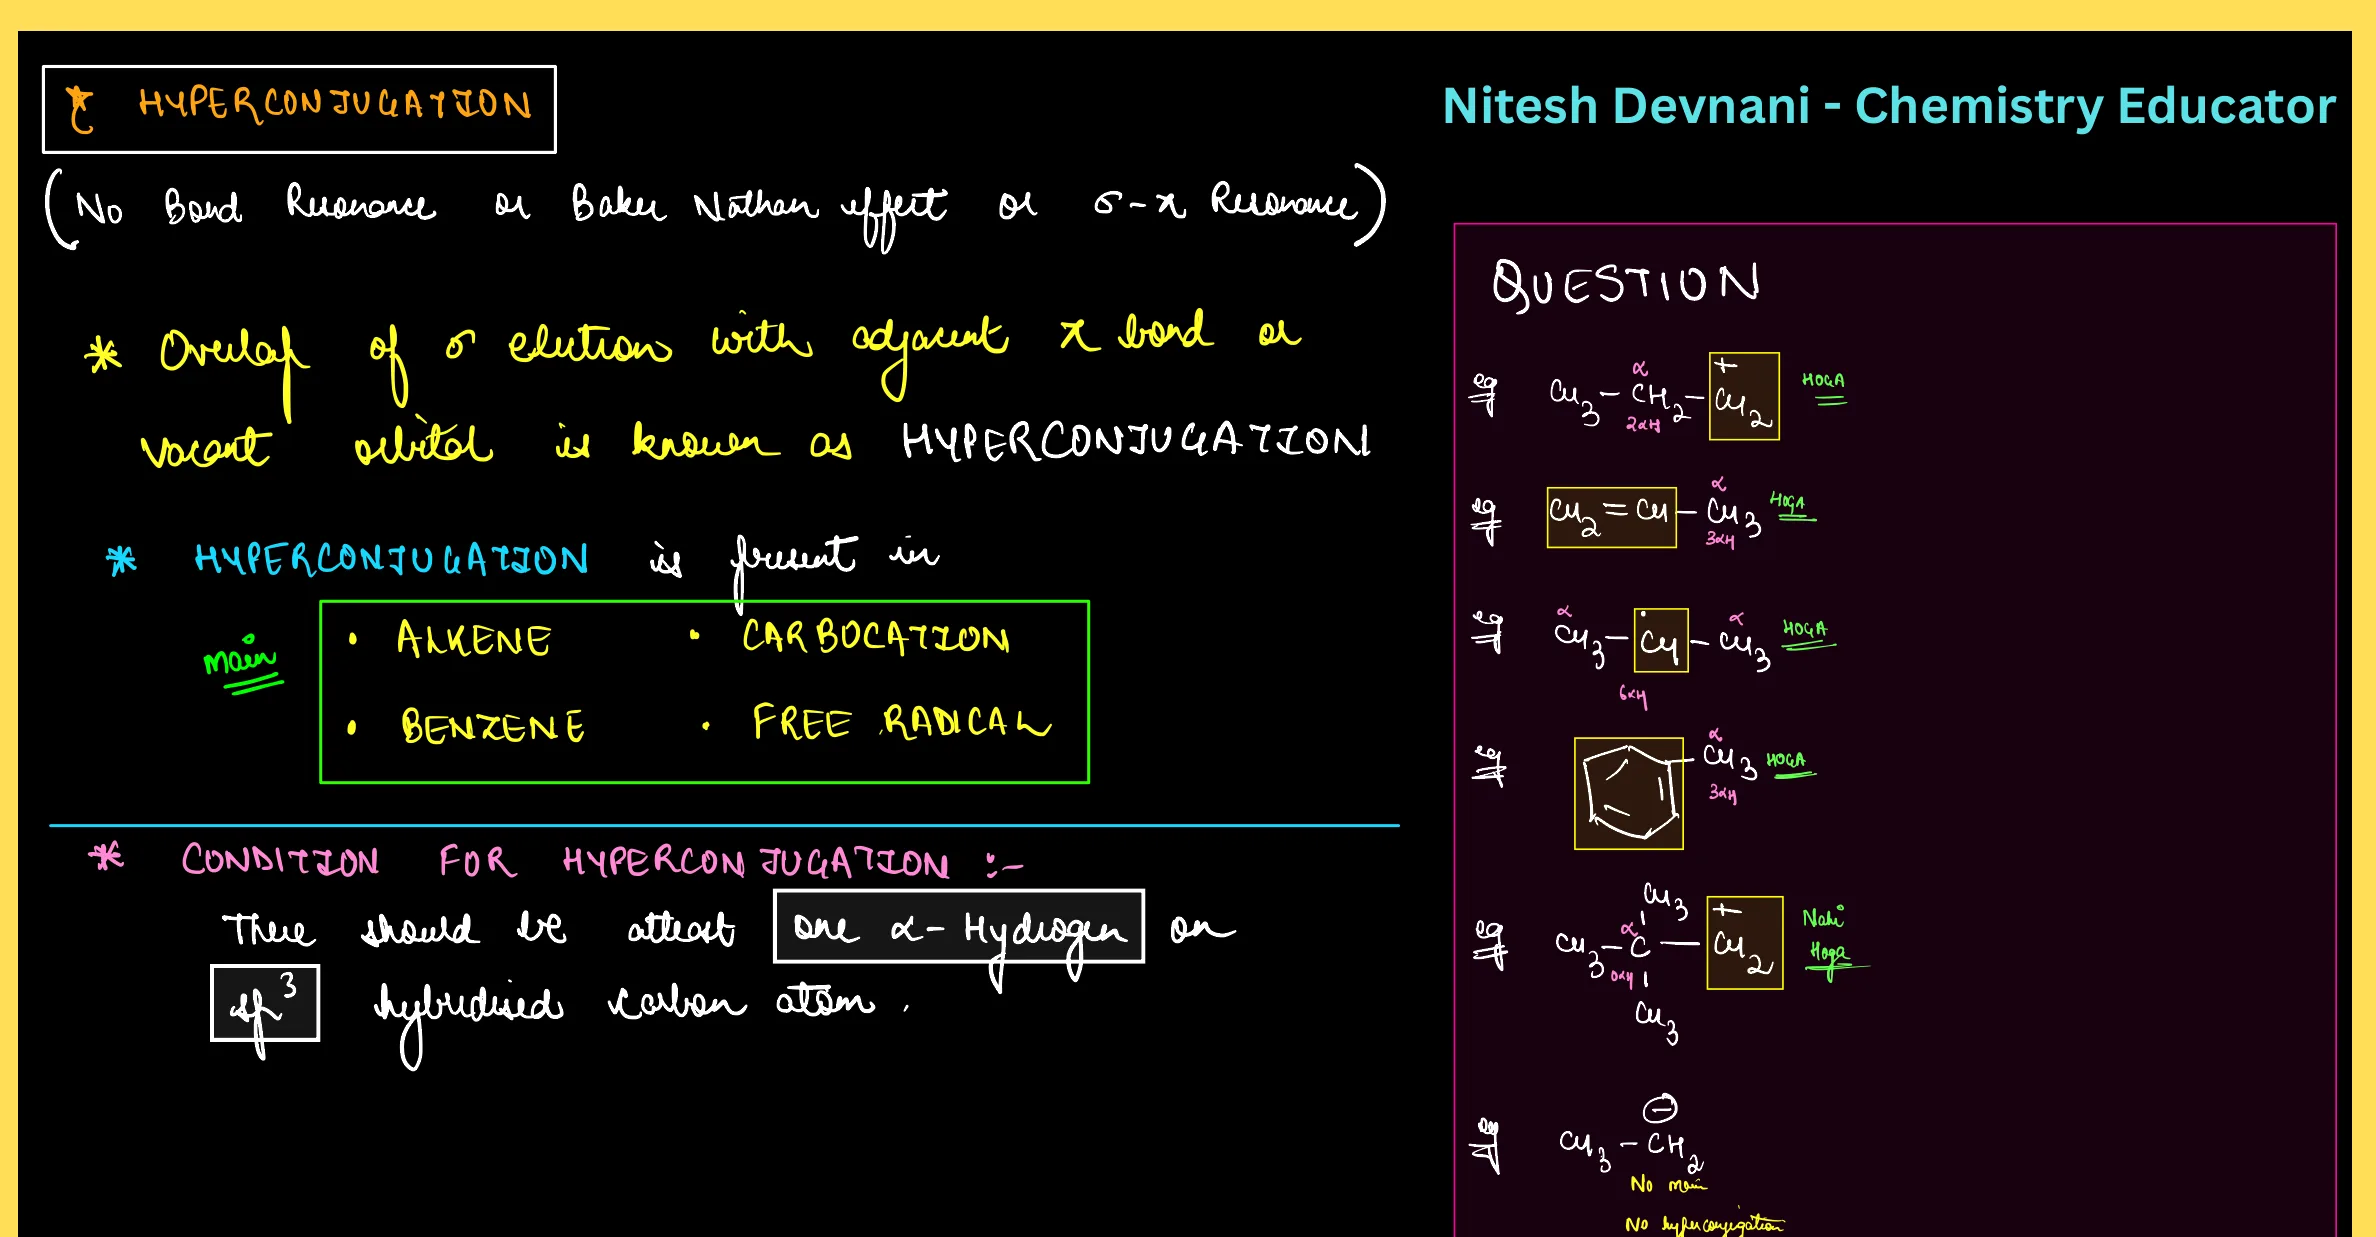 * HYPERCONJUGATION
Nitesh Devnani - Chemistry Educator
(No Bond Resonance or Baker Nathan effect or σ-π Resonance)
* Overlap of σ electron with adjacent π bond or
vacant orbital is known as HYPERCONJUGATION
* HYPERCONJUGATION is present in
main
• ALKENE • CARBOCATION
• BENZENE • FREE RADICAL
* CONDITION FOR HYPERCONJUGATION :-
There should be atleast one α-Hydrogen on
sp³ hybridised carbon atom.
QUESTION
α +
eg CH₃-CH₂-CH₂ HOGA
2αH
α
eg CH₂=CH-CH₃ HOGA
3αH
α • α
eg CH₃-CH-CH₃ HOGA
6αH
α
eg CH₃ HOGA
3αH
CH₃ +
eg CH₃-C-CH₂ Nahi
α Hoga
0αH
CH₃
⊖
eg CH₃-CH₂
No main
No hyperconjugation